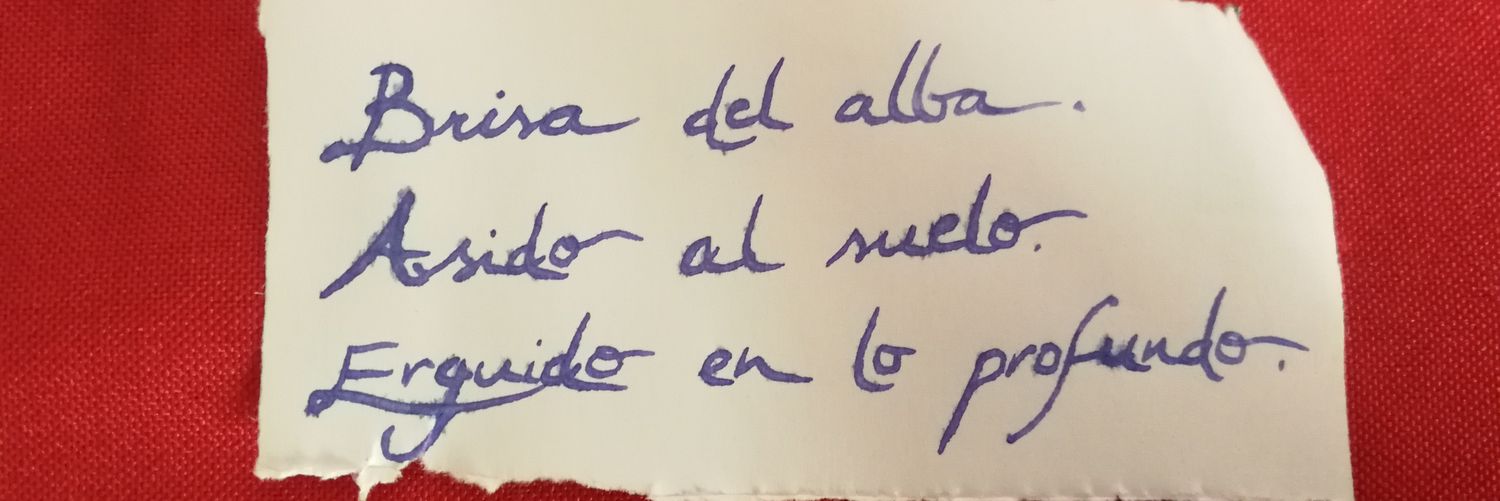 Brisa del alba.
Asido al suelo.
Erguido en lo profundo.